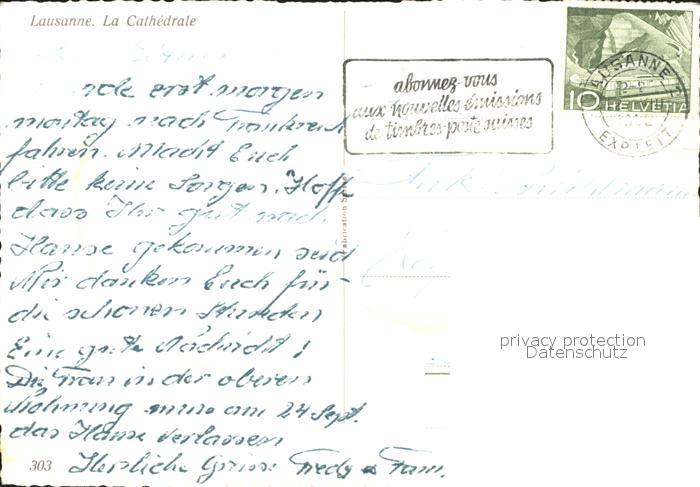 Lausanne. La Cathédrale
abonnez-vous
aux nouvelles émissions
de timbres-poste suisses
LAUSANNE 1
EXP. LETT.
10 HELVETIA
erst morgen
montag nach Frankreich
fahren. Macht Euch
bitte keine Sorgen. Hoffe
dass Ihr gut nach
Hause gekommen seid
Wir danken Euch für
die schönen Stunden
Eine gute Nachricht!
Die Frau in der oberen
Wohnung muss am 24 Sept.
das Hause verlassen
Herzliche Grüsse Fredy u Fam.
303
privacy protection
Datenschutz